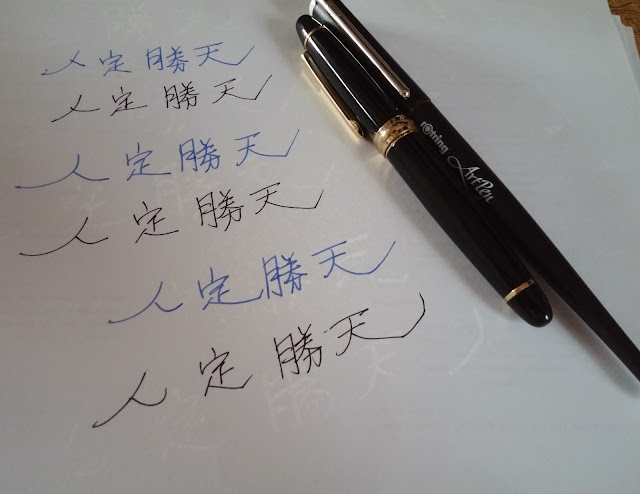 人定勝天
人定勝天
人定勝天
人定勝天
人定勝天
人定勝天
rOtring ArtPen